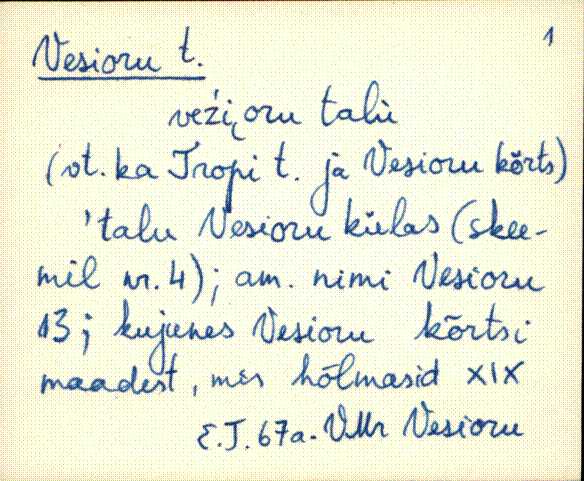 1
Vesioru t.
veźi̮oru talù
(vt. ka Tropi t. ja Vesioru kõrts)
'talu Vesioru külas (skee-
mil nr. 4); am. nimi Vesioru
13; kujunes Vesioru kõrtsi
maadest, mis hõlmasid XIX
E.J. 67a. VMr Vesioru